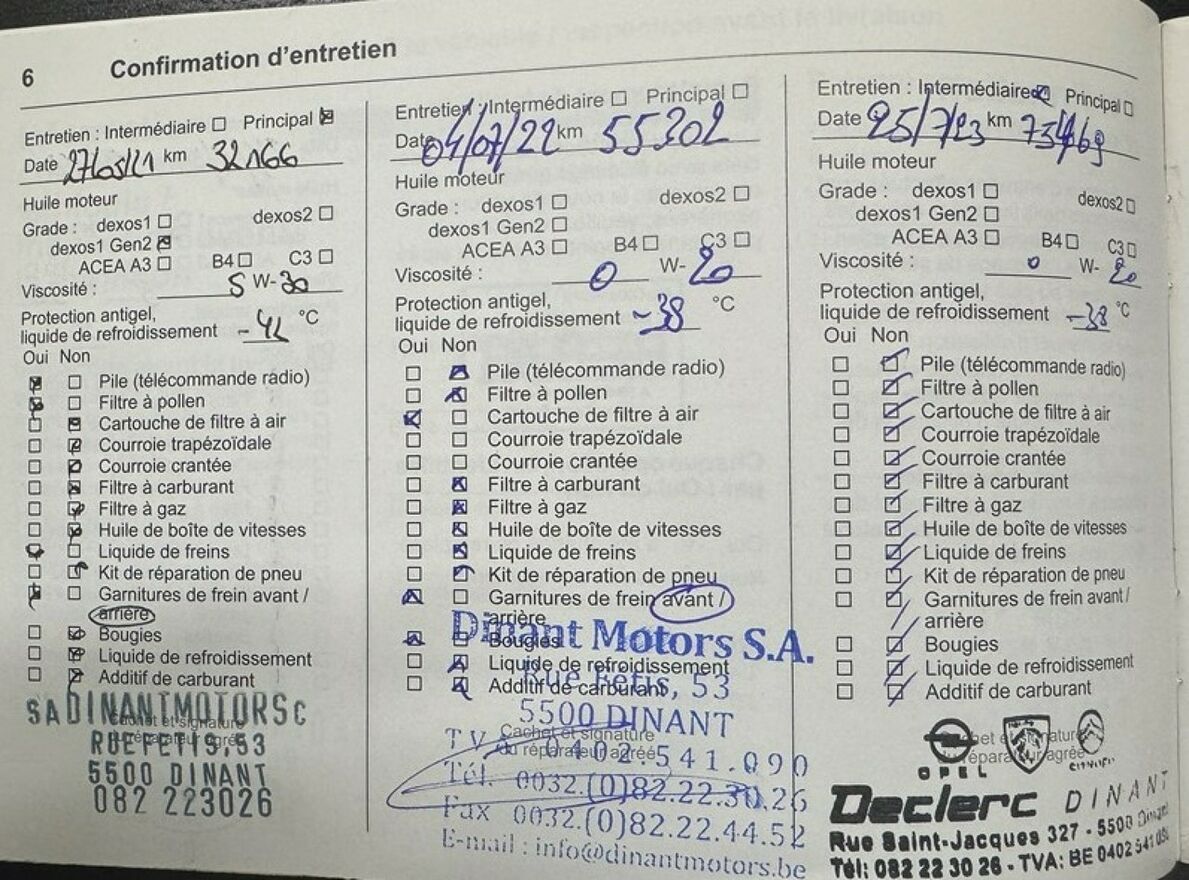 6 Confirmation d'entretien
Entretien : Intermédiaire Principal
Date 27/05/21 km 32166
Huile moteur
Grade : dexos1 dexos2
dexos1 Gen2
ACEA A3 B4 C3
Viscosité : 5 W-30
Protection antigel,
liquide de refroidissement -42 °C
Oui Non
Pile (télécommande radio)
Filtre à pollen
Cartouche de filtre à air
Courroie trapézoïdale
Courroie crantée
Filtre à carburant
Filtre à gaz
Huile de boîte de vitesses
Liquide de freins
Kit de réparation de pneu
Garnitures de frein avant /
arrière
Bougies
Liquide de refroidissement
Additif de carburant
SA DINANTMOTORS
Cachet et signature
RUE FETIS, 53
du réparateur agréé
5500 DINANT
082 223026
Entretien : Intermédiaire Principal
Date 04/07/22 km 55302
Huile moteur
Grade : dexos1 dexos2
dexos1 Gen2
ACEA A3 B4 C3
Viscosité : 0 W-20
Protection antigel,
liquide de refroidissement -38 °C
Oui Non
Pile (télécommande radio)
Filtre à pollen
Cartouche de filtre à air
Courroie trapézoïdale
Courroie crantée
Filtre à carburant
Filtre à gaz
Huile de boîte de vitesses
Liquide de freins
Kit de réparation de pneu
Garnitures de frein avant /
arrière
Dinant Motors S.A.
Bougies
Liquide de refroidissement
Rue Fétis, 53
Additif de carburant
5500 DINANT
Cachet et signature
du réparateur agréé
0402.541.090
Tél. 0032.(0)82.22.30.26
Fax 0032.(0)82.22.44.52
E-mail : info@dinantmotors.be
Entretien : Intermédiaire Principal
Date 25/7/23 km
Huile moteur
Grade : dexos1 dexos2
dexos1 Gen2
ACEA A3 B4 C3
Viscosité : 0 W-20
Protection antigel,
liquide de refroidissement -38 °C
Oui Non
Pile (télécommande radio)
Filtre à pollen
Cartouche de filtre à air
Courroie trapézoïdale
Courroie crantée
Filtre à carburant
Filtre à gaz
Huile de boîte de vitesses
Liquide de freins
Kit de réparation de pneu
Garnitures de frein avant /
arrière
Bougies
Liquide de refroidissement
Additif de carburant
Cachet et signature
du réparateur agréé
OPEL CITROËN
Declerc DINANT
Rue Saint-Jacques 327 - 5500 Dinant
Tél: 082 22 30 26 - TVA: BE 0402 541 090